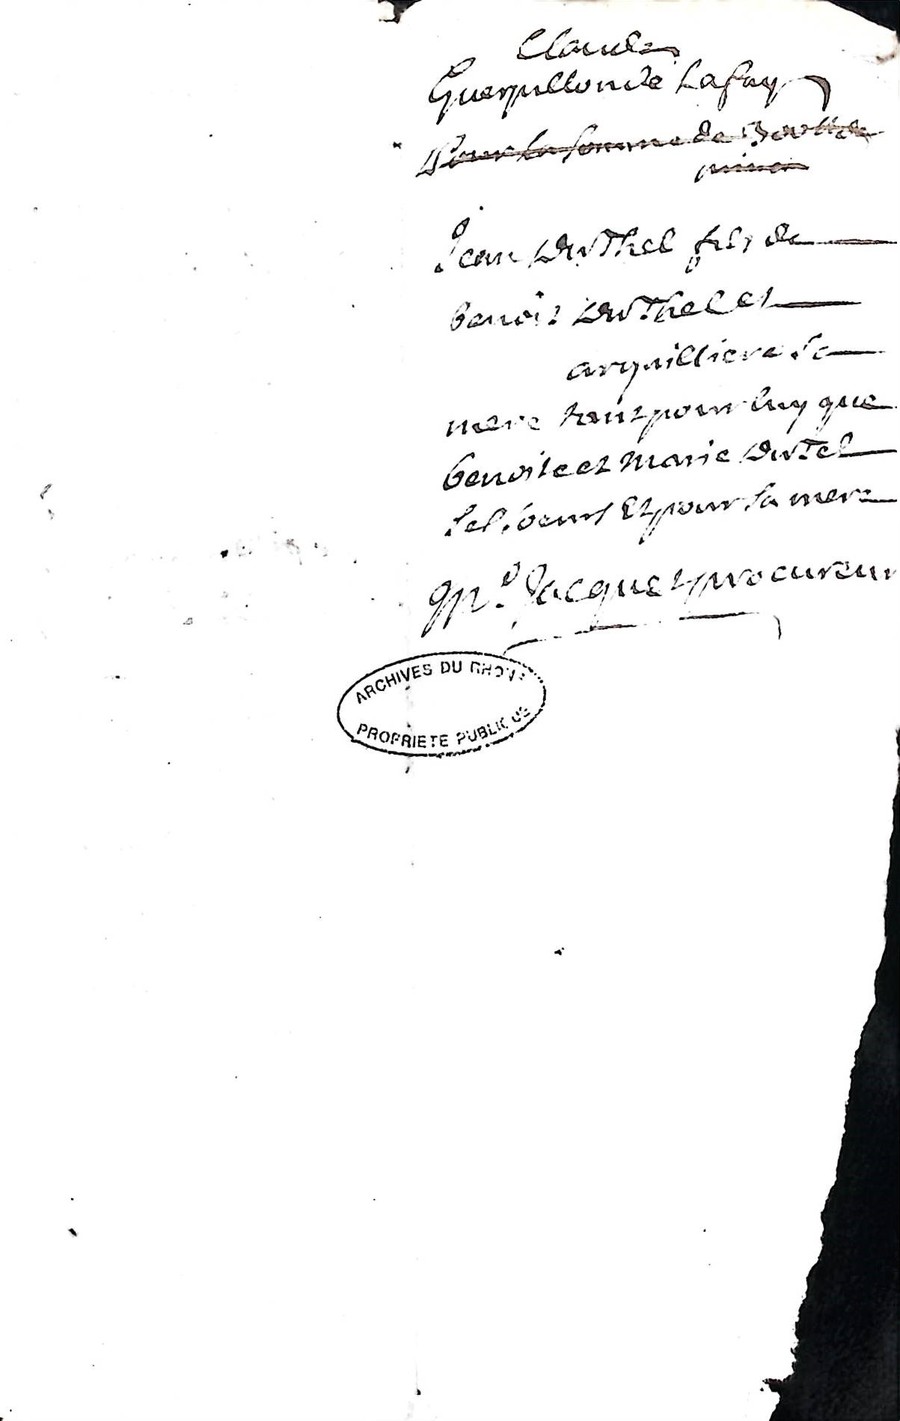 Claude
Guerpillon de Lafay
Pour la somme de 300 tt de
Jean Durhel fils de
benoit Durhel et
arquilliere sa
mere tant pour luy que
benoite et Marie Durel
ses soeurs Et pour sa mere
Me Jacquet procureur
ARCHIVES DU RHONE
PROPRIETE PUBLIQUE